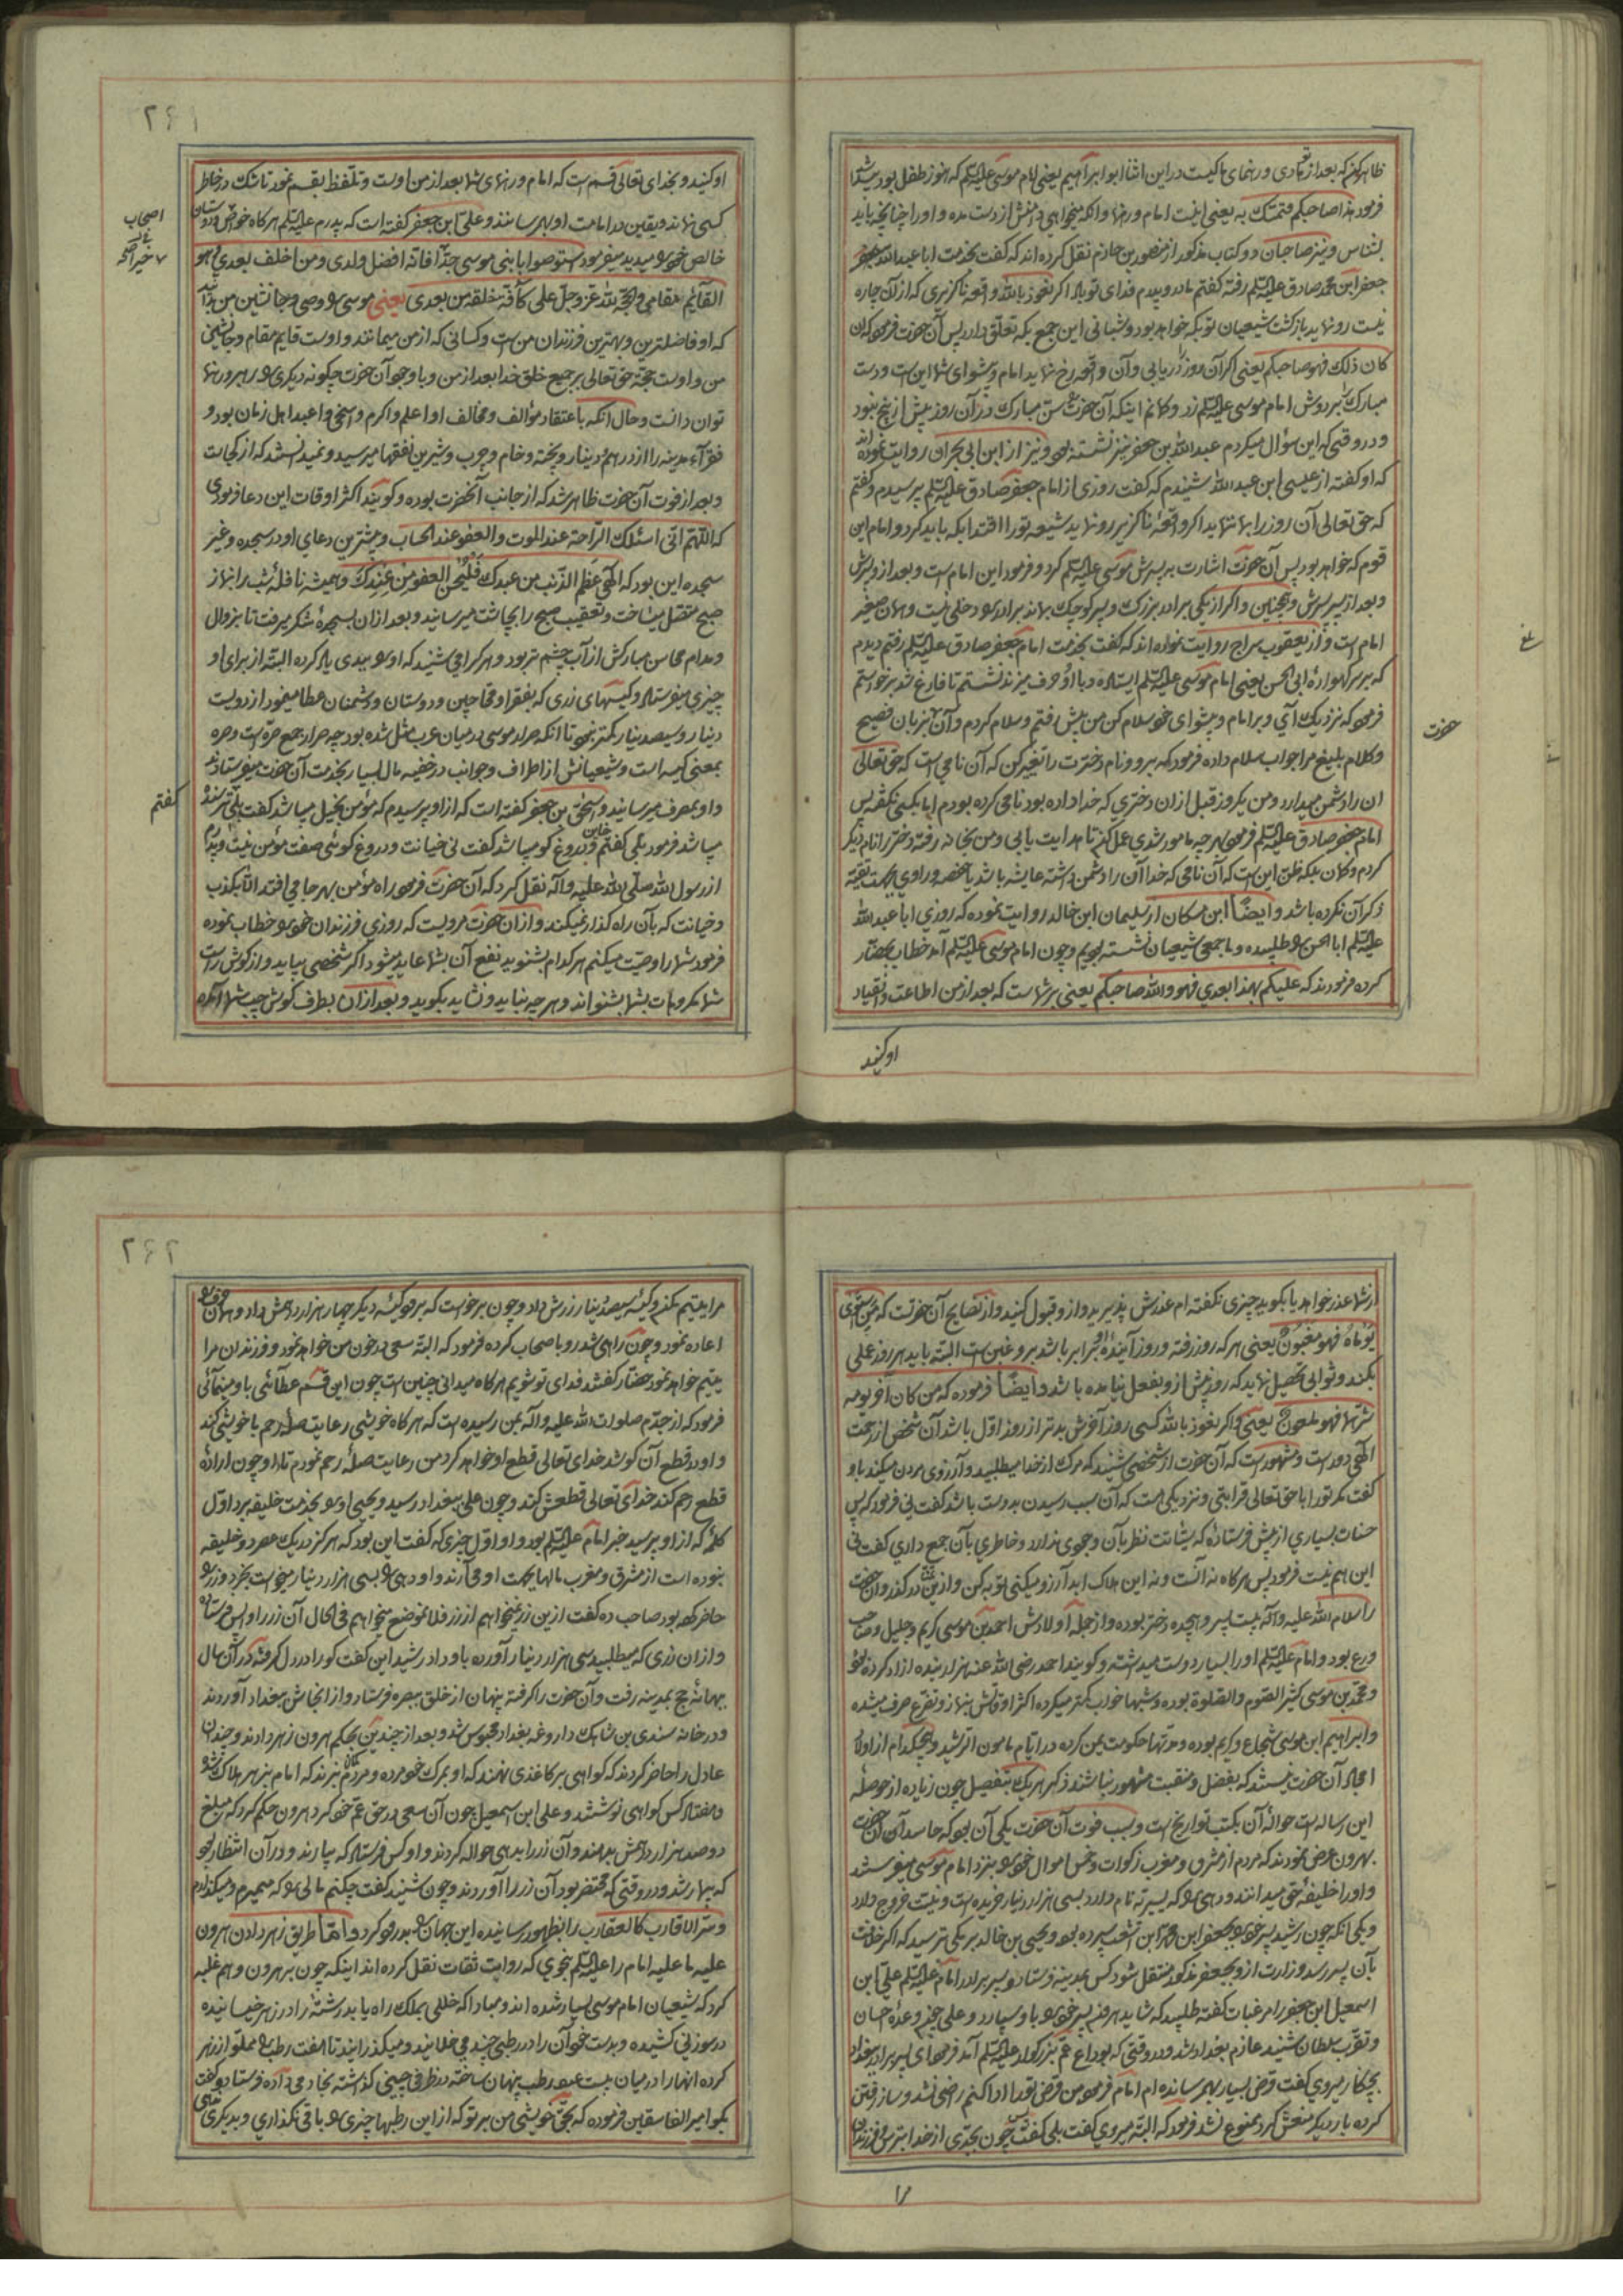 ظاهر کنم که بعد از تو هادی و رهنمای ما کیست در این اثنا ابو ابراهیم یعنی امام موسی علیه السلم که هنوز طفل بود پیدا شد
فرمود هذا صاحبکم فتمسّک به یعنی اینست امام و رهنما و آنکه میخواهی دامنش از دست مده و او را چنانچه باید
بشناس و نیز صاحبان دو کتاب مذکور از منصور بن حازم نقل کرده اند که گفت بخدمت ابا عبد الله جعفر
جعفر ابن محمد صادق علیه السلم رفته گفتم مادر و پدرم فدای تو باد اگر نعوذ بالله واقعه ناگزیری که از آن چاره
نیست رو نماید بازگشت شیعیان تو بکه خواهد بود و شبانی این جمع بکه تعلق دارد پس آن حضرت فرمود که ان
کان ذلک فهو صاحبکم یعنی اگر آن روز دریابی و آن واقعه رخ نماید امام و پیشوای شما این است و دست
مبارک بر دوش امام موسی علیه السلم زد و گمانم اینکه آن حضرت سن مبارک در آن روز بیش از پنج نبود
و در وقتی که این سؤال میکردم عبد الله بن جعفر نیز نشسته بود و نیز از ابن ابی نجران روایت نموده اند
که او گفته از عیسی ابن عبد الله شنیدم که گفت روزی از امام جعفر صادق علیه السلم پرسیدم و گفتم
که حق تعالی آن روز را بما ننماید اگر واقعه ناگزیر رو نماید شیعه تو را اقتدا بکه باید کرد و امام این
قوم که خواهد بود پس آن حضرت اشارت به پسرش موسی علیه السلم کرد و فرمود این امام است و بعد از و پسرش
و بعد از پسر پسرش و همچنین و اگر از یکی برادر بزرگ و پسر کوچک بماند برادر را دخلی نیست و همان صغیر
امام است و از یعقوب سراج روایت نموده اند که گفت بخدمت امام جعفر صادق علیه السلم رفتم دیدم
که بر سر گهواره ابی الحسن یعنی امام موسی علیه السلم ایستاده و با او حرف میزند نشستم تا فارغ شد برخواستم
فرمود که نزدیک آی و بر امام و پیشوای خود سلام کن من پیش رفتم و سلام کردم و آن بزبان فصیح
و کلام بلیغ مرا جواب سلام داده فرمود که برو و نام دخترت را تغییر کن که آن نامی است که حق تعالی
ان را دشمن میدارد و من یکروز قبل از ان دختری که خدا داده بود نامی کرده بودم اما بکسی نگفته پس
امام جعفر صادق علیه السلم فرمود بهر چه مامور شدی عمل کن تا هدایت یابی و من بخانه رفته دختر را نام دیگر
کردم و گمان بلکه ظن این است که آن نامی که خدا آن را دشمن داشته عایشه باشد یا حفصه و راوی بجهت تقیه
ذکر آن نکرده باشد و ایضا ابن مسکان از سلیمان ابن خالد روایت نموده که روزی ابا عبد الله
علیه السلم ابا الحسن را طلبیده و ما جمعی شیعیان نشسته بودیم و چون امام موسی علیه السلم آمد خطاب بحضار
کرده فرمودند که علیکم بهذا بعدی فهو والله صاحبکم یعنی بر شما ست که بعد از من اطاعت و انقیاد
حضرت
او کنید
۲۶۱
او کنید و بخدای تعالی قسم است که امام و رنهمای شما بعد از من اوست و تلفظ بقسم نمود تا شک در خاطر
کسی نماند و یقین در امامت او بهم رسانند و علی ابن جعفر گفته است که پدرم علیه السلم هر گاه خواص و دوستان
خالص خود را میدید میفرمود استوصوا بابنی موسی خیرا فانه افضل ولدی و من اخلف بعدی و هو
القائم مقامی و الحجة لله عز و جل علی کافة خلقه من بعدی یعنی موسی را وصی و جانشین من دانید
که او فاضلترین و بهترین فرزندان من است و کسانی که از من میمانند و اوست قایم مقام و جانشین
من و اوست حجة حق تعالی بر جمیع خلق خدا بعد از من و با وجود آن حضرت چگونه دیگری را رهبر و رنهما
توان دانست و حال آنکه باعتقاد مؤالف و مخالف او اعلم و اکرم و اسخی و اعبد اهل زمان بود و
فقراء مدینه را از درهم و دینار و پخته و خام و چرب و شیرین نفقها میرسید و نمیدانستند که از کجاست
و بعد از فوت آن حضرت ظاهر شد که از جانب آنحضرت بوده و گویند اکثر اوقات این دعا فرمودی
که اللهم انی اسئلک الراحة عند الموت و العفو عند الحساب و بیشترین دعای او در سجده و غیر
سجده این بود که الهی عظم الذنب من عبدک فلیحسن العفو من عندک و همیشه نافله شب را بنماز
صبح متصل میساخت و تعقیب صبح را بچاشت میرسانید و بعد از ان بسجده شکر میرفت تا بزوال
و مدام محاسن مبارکش از آب چشم تر بود و هر کرا می شنید که او را بیدی یاد کرده البته از برای او
چیزی میفرستاد و کیسهای زری که بفقرا و محتاجین و دوستان و دشمنان عطا میفرمود از دویست
دینار و سیصد دینار کمتر نبود تا آنکه صرار موسی در میان عرب مثل شده بود چه صرار جمع صره است و صره
بمعنی کیسه است و شیعیانش از اطراف و جوانب در خفیه مال بسیار بخدمت آن حضرت میفرستادند
و او بمصرف میرسانید و اسحق بن جعفر گفته است که از او پرسیدم که مؤمن بخیل میباشد گفت بلی ترسنده
میباشد فرمود بلی گفتم خاین و دروغ گو میباشد گفت نی خیانت و دروغ گوئی صفت مؤمن نیست و پدرم
از رسول الله صلی الله علیه و آله نقل کرد که آن حضرت فرمود راه مؤمن بهر جا می افتد الا بکذب
و خیانت که بآن راه گذار نمیکند و از ان حضرت مرویست که روزی فرزندان خود را خطاب نموده
فرمود شما را وصیت میکنم هر کدام بشنوید نفع آن بشما عاید میشود اگر شخصی بیاید و از گوش راست
شما مکروهات بشما بشنواند و هر چه نباید و نشاید بگوید و بعد از ان بطرف گوش چپ شما آمده
اصحاب
گفتم
از شما عذر خواهد یا بگوید چیزی نگفته ام عذرش پذیرید و از و قبول کنید و از نصایح آن حضرتست که من استوی
یوماه فهو مغبون یعنی هر که روز رفته و روز آینده او برابر باشد برو غبن است البته باید هر روز عملی
بکند و ثوابی تحصیل نماید که روز پیش از و بفعل نیامده باشد و ایضا فرموده که من کان آخر یومیه
شرهما فهو ملعون یعنی و اگر نعوذ بالله کسی روز آخرش بدتر از روز اول باشد آن شخص از رحمت
الهی دور است و مشهور است که آن حضرت از شخصی شنید که مرگ از خدا میطلبید و آرزوی مردن میکند باو
گفت مگر تو را با حق تعالی قرابتی و نزدیکی است که آن سبب رسیدن بدوست باشد گفت نی فرمود که پس
حسنات بسیاری از پیش فرستاده که بشاشت نظر بآن وجوی ندارد و خاطری بآن جمع داری گفت نی
این هم نیست فرمود پس هر گاه نه آنست و نه این هلاک ابد آرزو میکنی توبه کن و ازین در گذر و ان حضرت
را سلام الله علیه و آله بیست پسر و هیجده دختر بوده و از جمله اولادش احمد بن موسی کریم و جلیل و صاحب
ورع بود و امام علیه السلم او را بسیار دوست میداشته و گویند احمد رضی الله عنه هزار بنده ازاد کرده بود
و محمد بن موسی کثیر الصوم و الصلوة بوده و شبها خواب کمتر میکرده اکثر اوقاتش بنماز و تضرع صرف میشده
و ابراهیم ابن موسی شجاع و کریم بوده و مدتها حکومت یمن کرده در ایام مامون الرشید و هیچکدام از اولاد
امجاد آن حضرت نیستند که بفضل و منقبت مشهور نباشند ذکر هر یک بتفصیل چون زیاده از حوصله
این رساله است حواله آن بکتب تواریخ است و سبب فوت آن حضرت یکی آن بود که حاسدان آن حضرت
بهرون عرض نمودند که مردم از مشرق و مغرب زکوات و خمس اموال خود را بنزد امام موسی میفرستند
و او را خلیفه بحق میدانند و دهی را که یسیریه نام دارد بسی هزار دینار خریده است و نیت خروج دارد
و یکی انکه چون رشید پسر خود را بجعفر ابن محمد ابن اشعث سپرده بود و یحیی بن خالد برمکی ترسید که اگر خلافت
بآن پسر رسد وزارت از و بجعفر مذکور منتقل شود کس بمدینه فرستاد و پسر برادر امام علیه السلم علی ابن
اسمعیل ابن جعفر را مرغبات گفته طلبید که شاید هرفتم پسر خود را باو سپارد و علی چون وعده احسان
و تقرب سلطان شنید عازم بغداد شد و در وقتی که بوداع عم بزرگوار علیه السلم آمد فرمود ای پسر برادر ببغداد
بچکار میروی گفت قرض بسیار بهم رسانده ام امام فرمود من قرض تو را ادا کنم راضی نشد و ساز رفتن
کرده بار دیگر منعش کرد ممنوع نشد فرمود که البته میروی گفت بلی گفت پس چون بجدی از خدا بترس و فرزندان
مرا
۲۶۲
مرا یتیم مکن و کیسه سیصد دینار زرش داد و چون برخواست که برود کیسه دیگر چهار هزار درهمش داد و همان حرف را
اعاده نمود و چون راهی شد رو باصحاب کرده فرمود که البته سعی در خون من خواهد نمود و فرزندان مرا
یتیم خواهد نمود حضار گفتند فدای تو شویم هر گاه میدانی چنین است چون این قسم عطائی باو مینمائی
فرمود که از جدم صلوات الله علیه و آله بمن رسیده است که هر گاه خویشی رعایت صله رحم با خویشی کند
و او در قطع آن کوشد خدای تعالی قطع او خواهد کرد من رعایت صله رحم نمودم تا او چون اراده
قطع رحم کند خدای تعالی قطعش کند و چون علی ببغداد رسید و یحیی او را بخدمت خلیفه برد اول
کلمه که از او پرسید خبر امام علیه السلم بود و او اول چیزی که گفت این بود که هرگز در یک عصر دو خلیفه
نبوده است از مشرق و مغرب مالها بجهت او می آرند و او دهی را بسی هزار دینار میخواست بخرد و زر را
حاضر کرده بود صاحب ده گفت ازین زر نمیخواهم از زر فلان موضع میخواهم فی الحال آن زر را واپس فرستاده
و از ان زری که میطلبید سی هزار دینار آورده باو داد رشید این گفت گو را در دل گرفته در آن سال
ببهانه حج بمدینه رفت و آن حضرت را گرفته پنهان از خلق ببصره فرستاد و از انجاش ببغداد آوردند
و در خانه سندی بن شاهک داروغه بغداد محبوس شد و بعد از چندین بحکم هرون زهر دادند و چندان
عادل را حاضر کردند که گواهی بر کاغذی نهند که او بمرگ خود مرده و مردم گمان نبرند که امام بزهر هلاک شد
و هفتاد کس گواهی نوشتند و علی ابن اسمعیل چون آن سعی در حق عم خود کرد هرون حکم کرد که مبلغ
دوصد هزار درهمش بدهند و آن زر را بدهی حواله کردند و او کس فرستاد که بیارند و در آن انتظار بود
که بیمار شد و در وقتی که محتضر بود آن زر را آوردند و چون شنید گفت چکنم مالی را که میمیرم و میگذارم
و سر الاقارب کالعقارب را بظهور رسانیده این جهان را بدرود کرد و اما طریق زهر دادن هرون
علیه ما علیه امام را علیه السلم بنحوی که روایت ثقات نقل کرده اند اینکه چون بر هرون وهم غلبه
کرد که شیعیان امام موسی بسیار شده اند و مبادا که خللی بملک راه یابد رشته را در زهر خیسانیده
در سوزنی کشیده و بدست خود آن را در رطبی چند می خلانید و میگذرانید تا هفت رطب را مملو از زهر
کرده انها را در میان بیست عدد رطب پنهان ساخته در ظرف چینی گذاشته بخادمی داده فرستاد و گفت
بگو امیر الفاسقین فرموده که بحق خویشی من بر تو که از این رطبها چیزی را باقی نگذاری و بدیگری ندهی